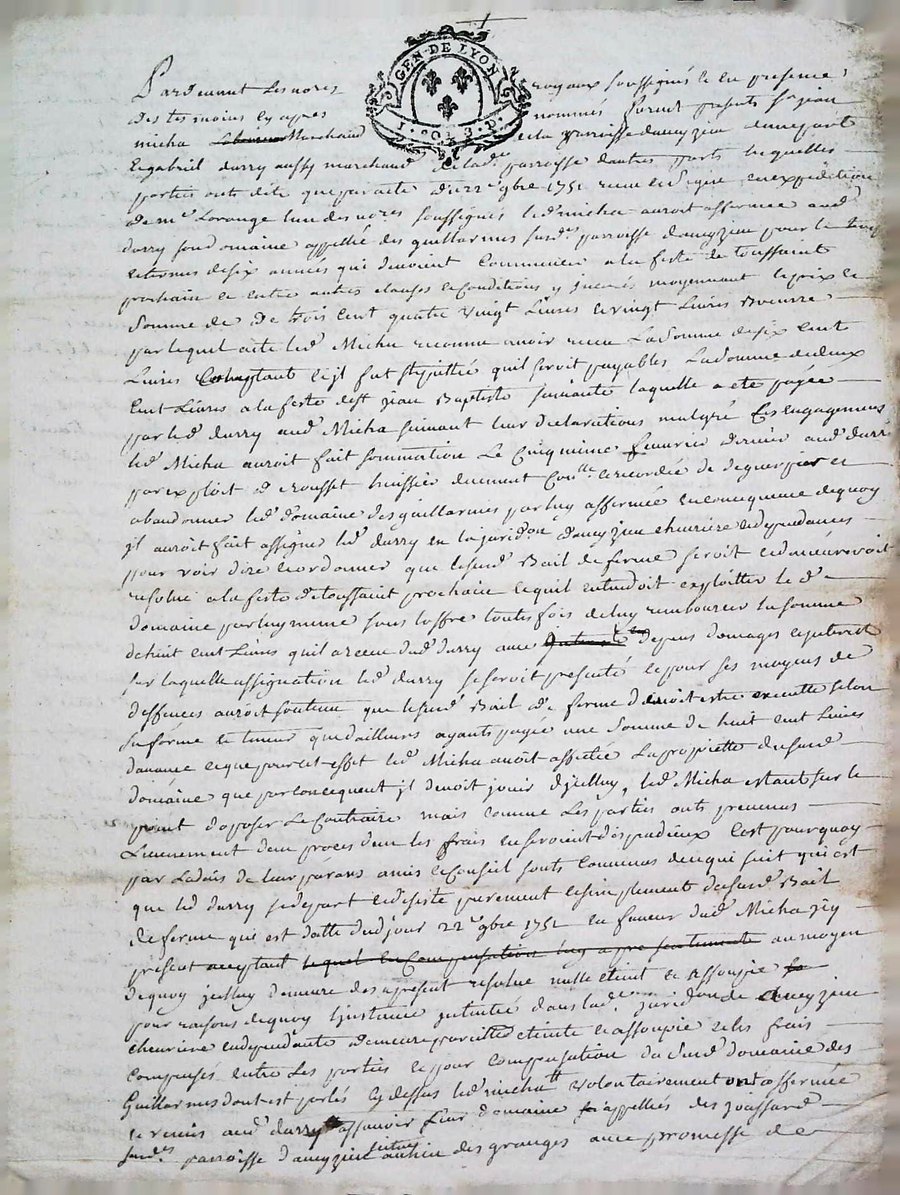 GEN. DE LYON
Pardevant les nores royaux soussignés & en presence
des temoins cy apres nommés furent presents sr jean
micha Marchand de la parroisse daveyzieu dune part
& gabriel durry aussy marchand de lad. parroisse dautre part lesquelles
parties onts dite que par acte du 22e 9bre 1751 receu en expedition
de me Lorange lun des nores soussignés led. micha auroit affermée aud.
durry son domaine appellée des guillarmes susd. parroisse daveyzieu pour le temps
& termes de six années qui devoient commencer a la feste de toussaint
prochaine & entre autres clauses & conditions y inserés moyennant le prix &
somme de de trois cent quatre vingt Livres & vingt Livres Beurre
par lequel acte led. Micha reconnu avoir receu La somme de six cent
Livres & il fut stipullée quil seroit payables La somme de deux
cent Livres a la feste de st jean Baptiste suivante laquelle a ete payée
par led. durry aud. Micha suivant leur declarations malgré Ces engagement
led. Micha auroit fait sommation Le cinquieme fevrier dernier aud. durry
par exploit de rousset huissier duement Conlle de deguerpir et
abandonner led. domaine des guillarmes par luy affermée en consequence de quoy
il auroit fait assigner led. durry en la juridon daveyzieu chevriere & dependances
pour voir dire & ordonner que le susd. Bail de ferme seroit & demeureroit
resolue a la feste de toussaint prochaine & quil entendoit exploitter led.
domaine par luy meme sous loffre toutesfois de luy rembourcer la somme
de huit cent Livres quil a receu dud. durry avec depens domages & interest
sur laquelle assignation led. durry se seroit presenté & pour ses moyens de
deffences auroit soutenu que le susd. Bail de ferme devoit estre executté selon
sa forme & teneur que dailleurs ayants payée une somme de huit cent Livres
davance & que pour cet effet led. Micha avoit affectée La propriette du susd.
domaine que par consequent il devoit jouir djcelluy, led. Micha estant sur le
point doposer Le Contraire mais comme Les parties onts prevenus
Levenement dun proces dont les frais en seroient dispendieux Cest pourquoy
par Ladvis de leur parans amis & conseil sonts convenus de ce qui suit qui est
que led. durry se depart & desiste purement & simplement du susd. Bail
de ferme qui est datté dud. jour 22e 9bre 1751 en faveur dud. Micha jcy
present acceptant lequel en Compensation au moyen
dequoy jcelluy demeure des apresent resolue nulle eteint & assoupie
pour raisons de quoy Linstance intentée dans lad. juridon de aveyzieu
chevriere & dependante demeure pareille eteinte & assoupie & les frais
compensés entre Les parties & pour compensation du susd. domaine des
Guillarmes dont est parlés cy dessus led. micha volontairement affermée
& remis aud. durry assavoir Leur domaine appellés des joissard
susd. parroisse daveyzieu au lieu des granges avec promesse de